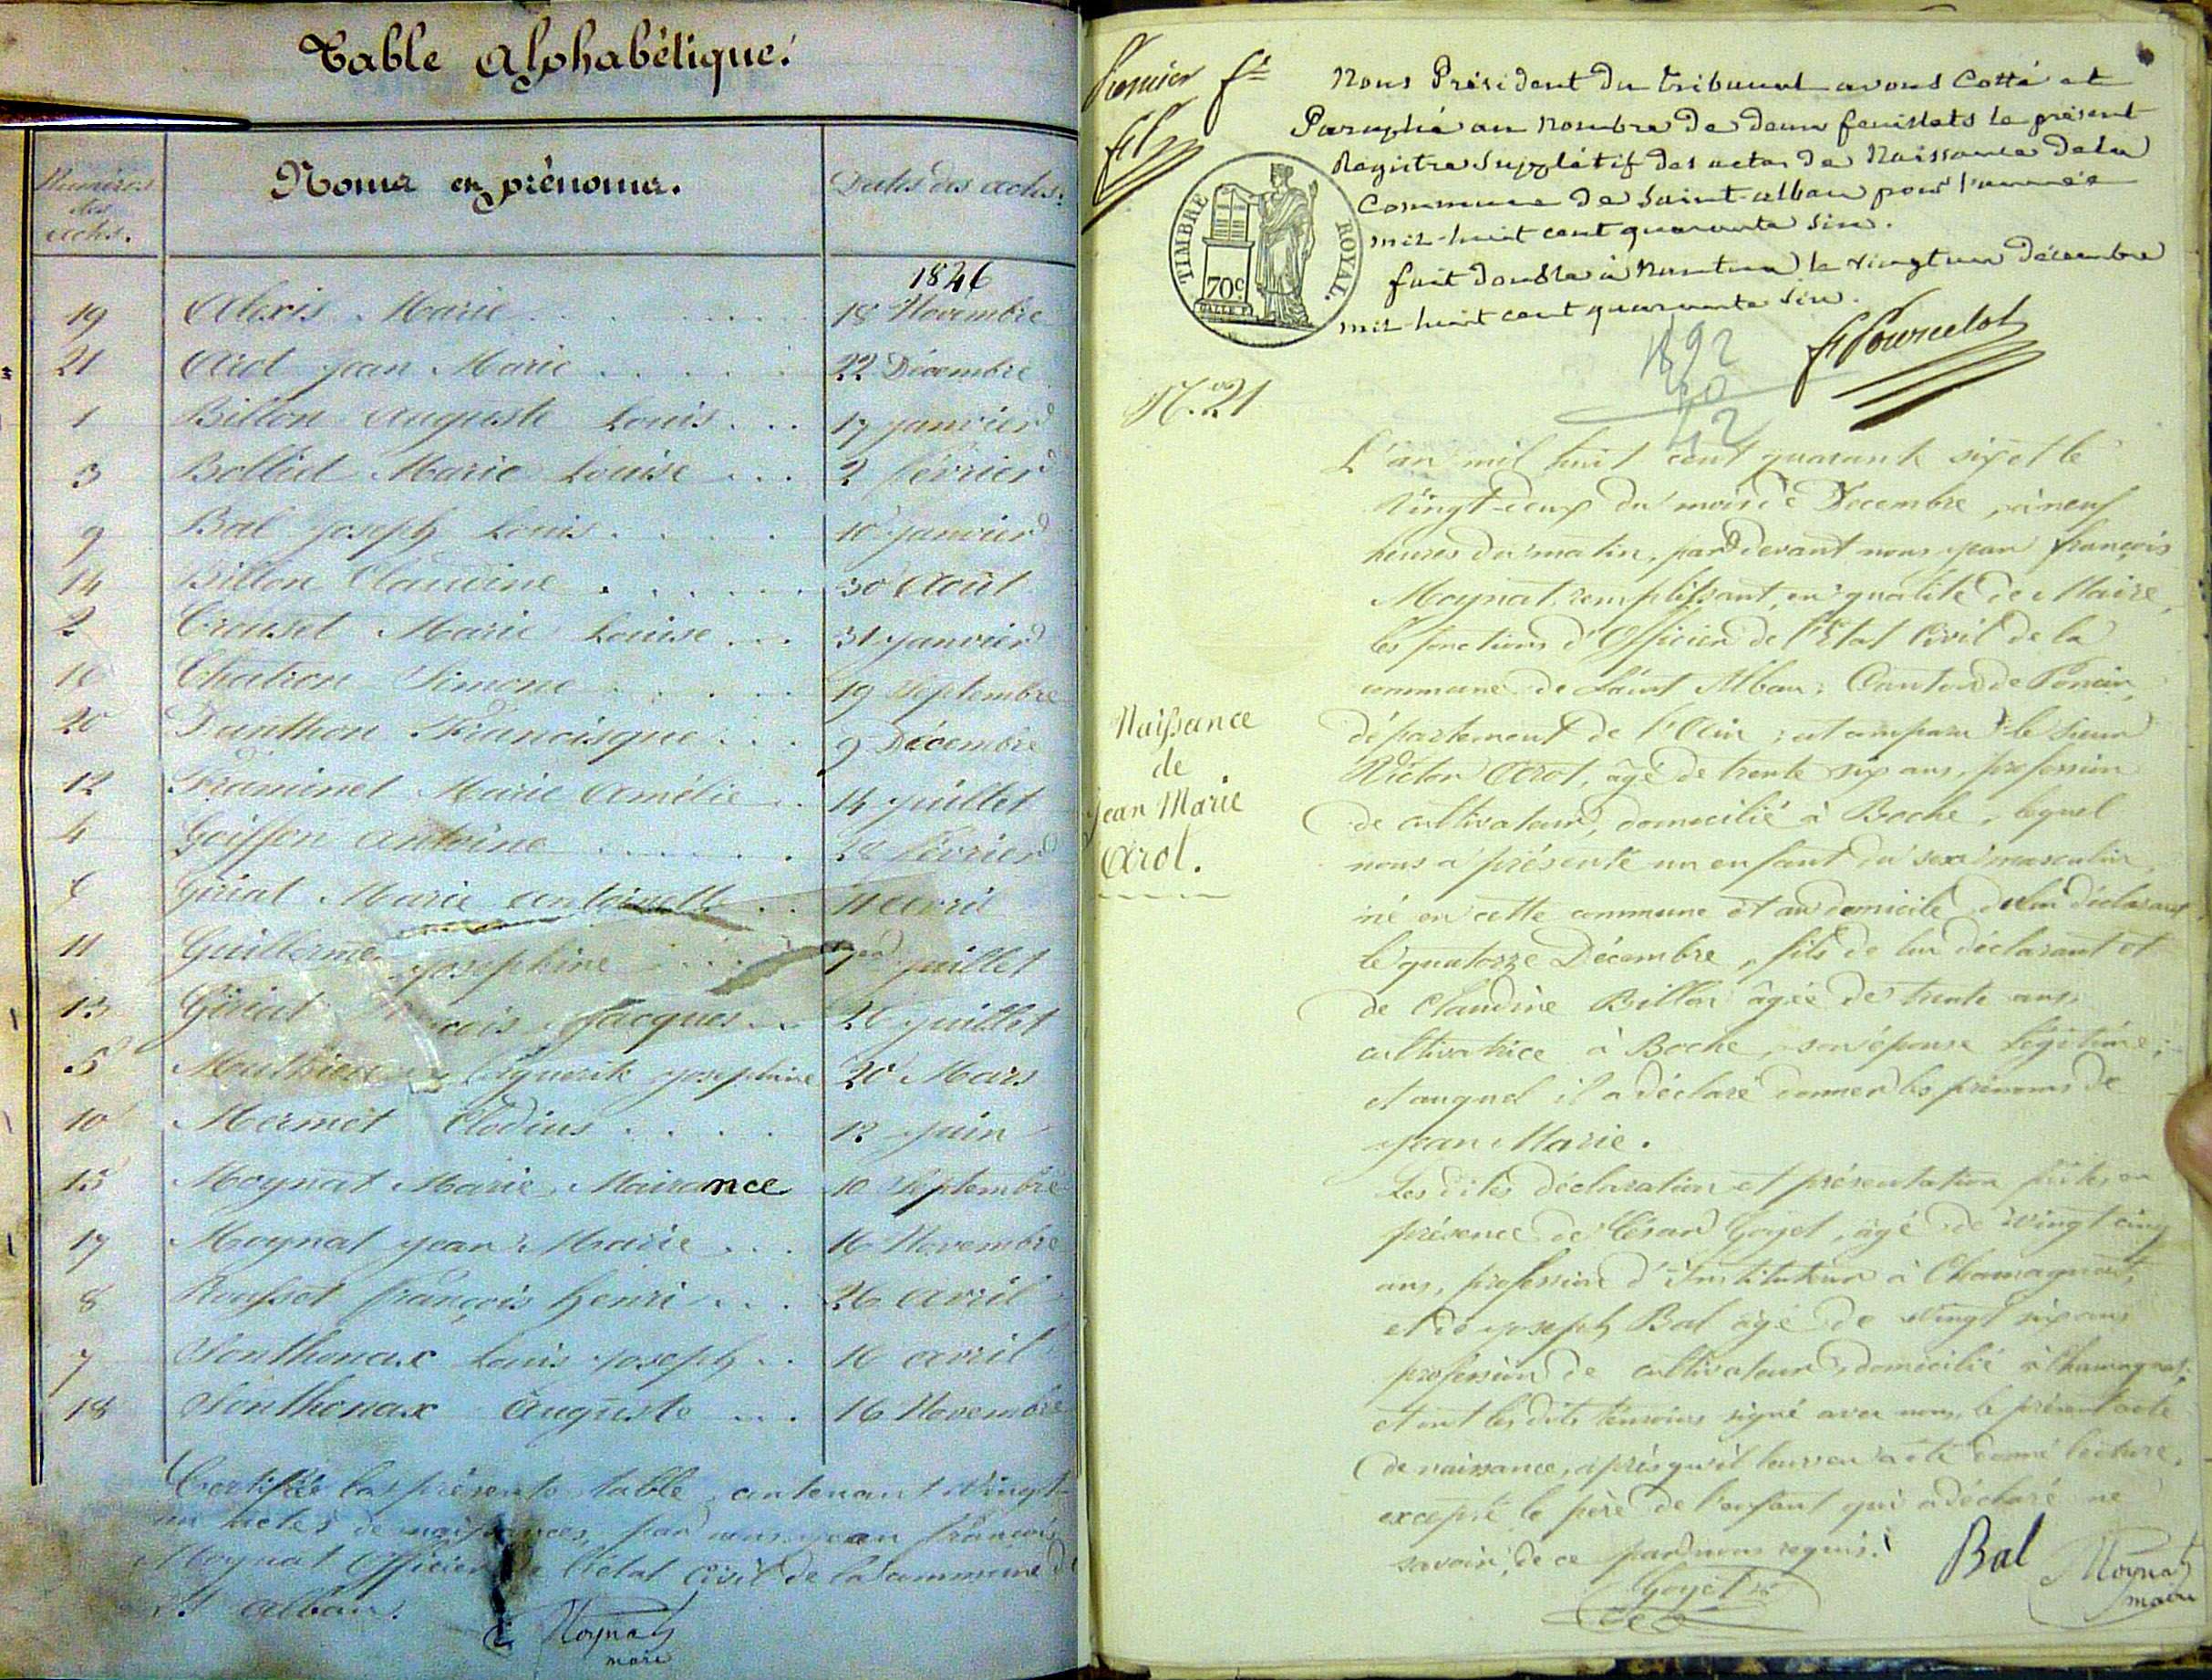 Table Alphabétique.
Numéros des actes.
Noms et prénoms.
Dates des actes.
1846
19 Alexis Marie 18 Novembre
21 Arot Jean Marie 22 Décembre
1 Billon Auguste Louis 17 janvier
3 Bolliet Marie Louise 2 février
9 Bal Joseph Louis 10 janvier
14 Billon Claudine 30 Août
2 Crouset Marie Louise 31 janvier
16 Chatron Simone 19 Septembre
20 Danthon Francisque 9 Décembre
12 Framinet Marie Amélie 14 juillet
4 Goiffon Antoine 28 février
6 Griat Marie Antoinette 11 avril
11 Guillerme Josephine 1er juillet
13 Griat Jacques 26 juillet
5 Josephine 20 Mars
10 Mermet Clodius 12 juin
15 Moynat Marie Mairance 10 Septembre
17 Moynat Jean Marie 16 Novembre
8 Rousset françois henri 26 avril
7 Sonthonax Louis Joseph 16 avril
18 Sonthonax Auguste 16 Novembre
Certifié la présente table contenant vingt-
un actes de naissances, par nous Jean françois
Moynat Officier de l'état civil de la commune de
St alban.
Moynat
maire
Premier ft
Nous Président du tribunal avons Cotté et
Paraphé au nombre de deux feuillets le présent
Registre Supplétif des actes de Naissance de la
Commune de Saint-alban pour l'année
mil-huit cent quarante six.
fait double à Nantua le vingt un décembre
mil-huit cent quarante six.
TIMBRE ROYAL.
70c
1892
42
N.° 21
L'an mil huit cent quarante six et le
Vingt-deux du mois de Décembre, à neuf
heures du matin, par devant nous jean françois
Moynat, remplissant, en qualité de Maire,
les fonctions d'Officier de l'Etat Civil de la
commune de Saint Alban, Canton de Poncin,
département de l'Ain, est comparu le Sieur
Victor Arot, âgé de trente six ans, profession
de cultivateur, domicilié à Boche, lequel
nous a présenté un enfant du sexe masculin,
né en cette commune et au domicile de lui déclarant
le quatorze Décembre, fils de lui déclarant et
de Claudine Billon âgée de trente ans,
cultivatrice à Boche, son épouse légitime;
et auquel il a déclaré donner les prénoms de
Jean Marie.
Les dites déclaration et présentation faites en
présence de César Goyet, âgé de vingt cinq
ans, profession d'Instituteur à Chamagnat,
et de Joseph Bal âgé de vingt six ans
profession de cultivateur, domicilié à Chamagnat;
et ont les dits témoins signé avec nous, le présent acte
de naissance, après qu'il leur en a été donné lecture,
excepté le père de l'enfant qui a déclaré ne
savoir, de ce par nous requis.
Naissance
de
Jean Marie
Arot.
Goyet
Bal
Moynat
maire